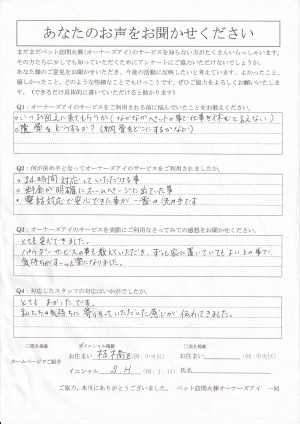 あなたのお声をお聞かせください
まだまだペット訪問火葬(オーナーズアイ)のサービスを知らない方がたくさんいらっしゃいます。
その方たちに少しでも知っていただくためにアンケートにご協力いただけないでしょうか。
あなた様のご意見をお聞かせいただき、今後の活動に反映したいと考えています。よかったこと、
嬉しかったこと、どのような些細なことでもけっこうです。ぜひご協力をよろしくお願いいたします。
(できるだけ具体的に書いていただけると助かります)
Q1:オーナーズアイのサービスをご利用される前に悩んでいたことをお教えください。
○いつお迎えに来てもらうか(なかなかペットの事で仕事を休むと言えない)
○遺骨をどうするか?(納骨をどこにするかなど)
Q2:何が決め手となってオーナーズアイのサービスをご利用されましたか。
○24時間対応していただける事
○料金が明確にホームページに出ていた事
○電話対応で安心できた事が一番の決め手です。
Q3:オーナーズアイのサービスを実際にご利用になさってみての感想をお聞かせください。
とても安心できました。
パウダーサービスの事も教えていただき、ずっと家に置いていてもよいとの事で
気持ちがすーっと楽になりました。
Q4:対応したスタッフの対応はいかがでしたか。
とても よかったです。
私たちの気持ちに寄り添っていただいた感じが伝わってきました。
□匿名掲載 ☑イニシャル掲載 □実名掲載
ホームページでご紹介 お住まい 板橋区 (例:中央区) お住まい (例:中央区)
イニシャル S.H (例:J.H) 氏名
ご協力、本当にありがとうございました。 ペット訪問火葬オーナーズアイ 一同